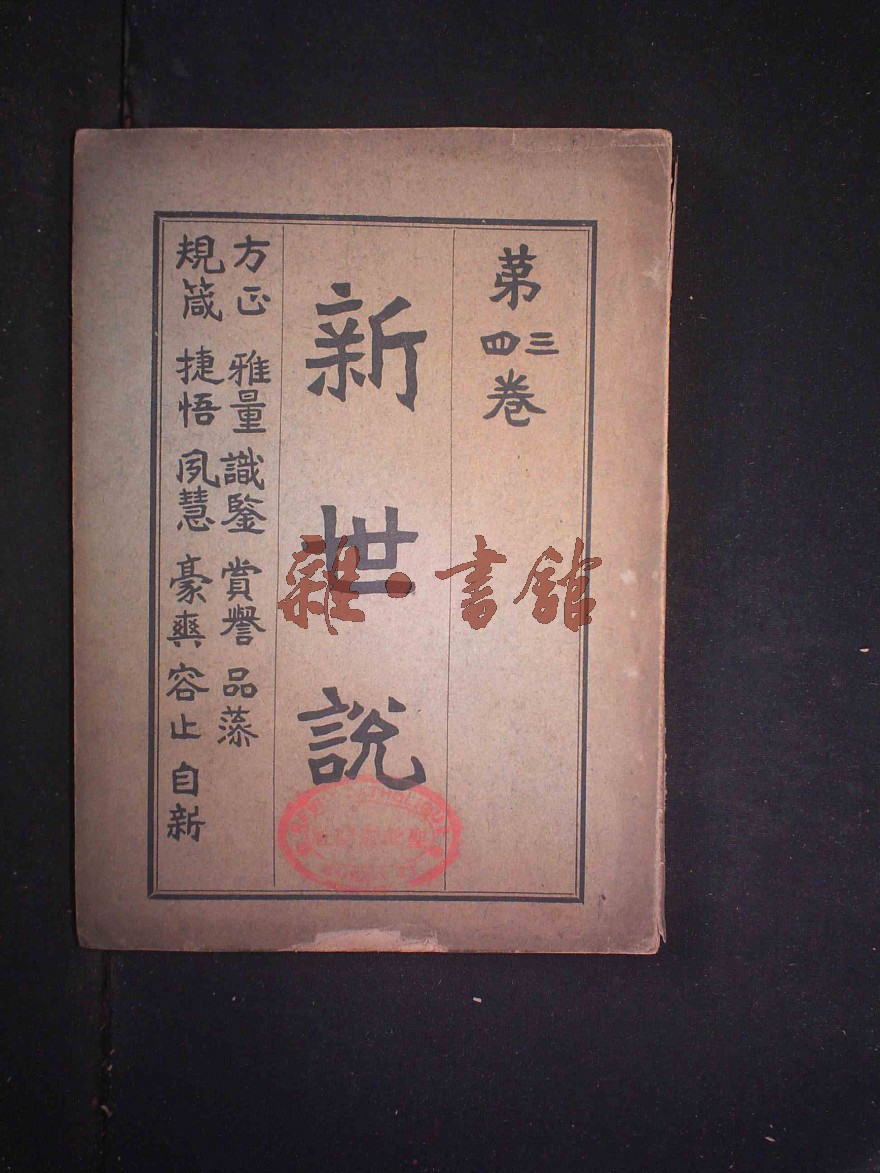 第三四卷
新世說
方正 雅量 識鑒 賞譽 品藻
規箴 捷悟 夙慧 豪爽 容止 自新
雜·書館